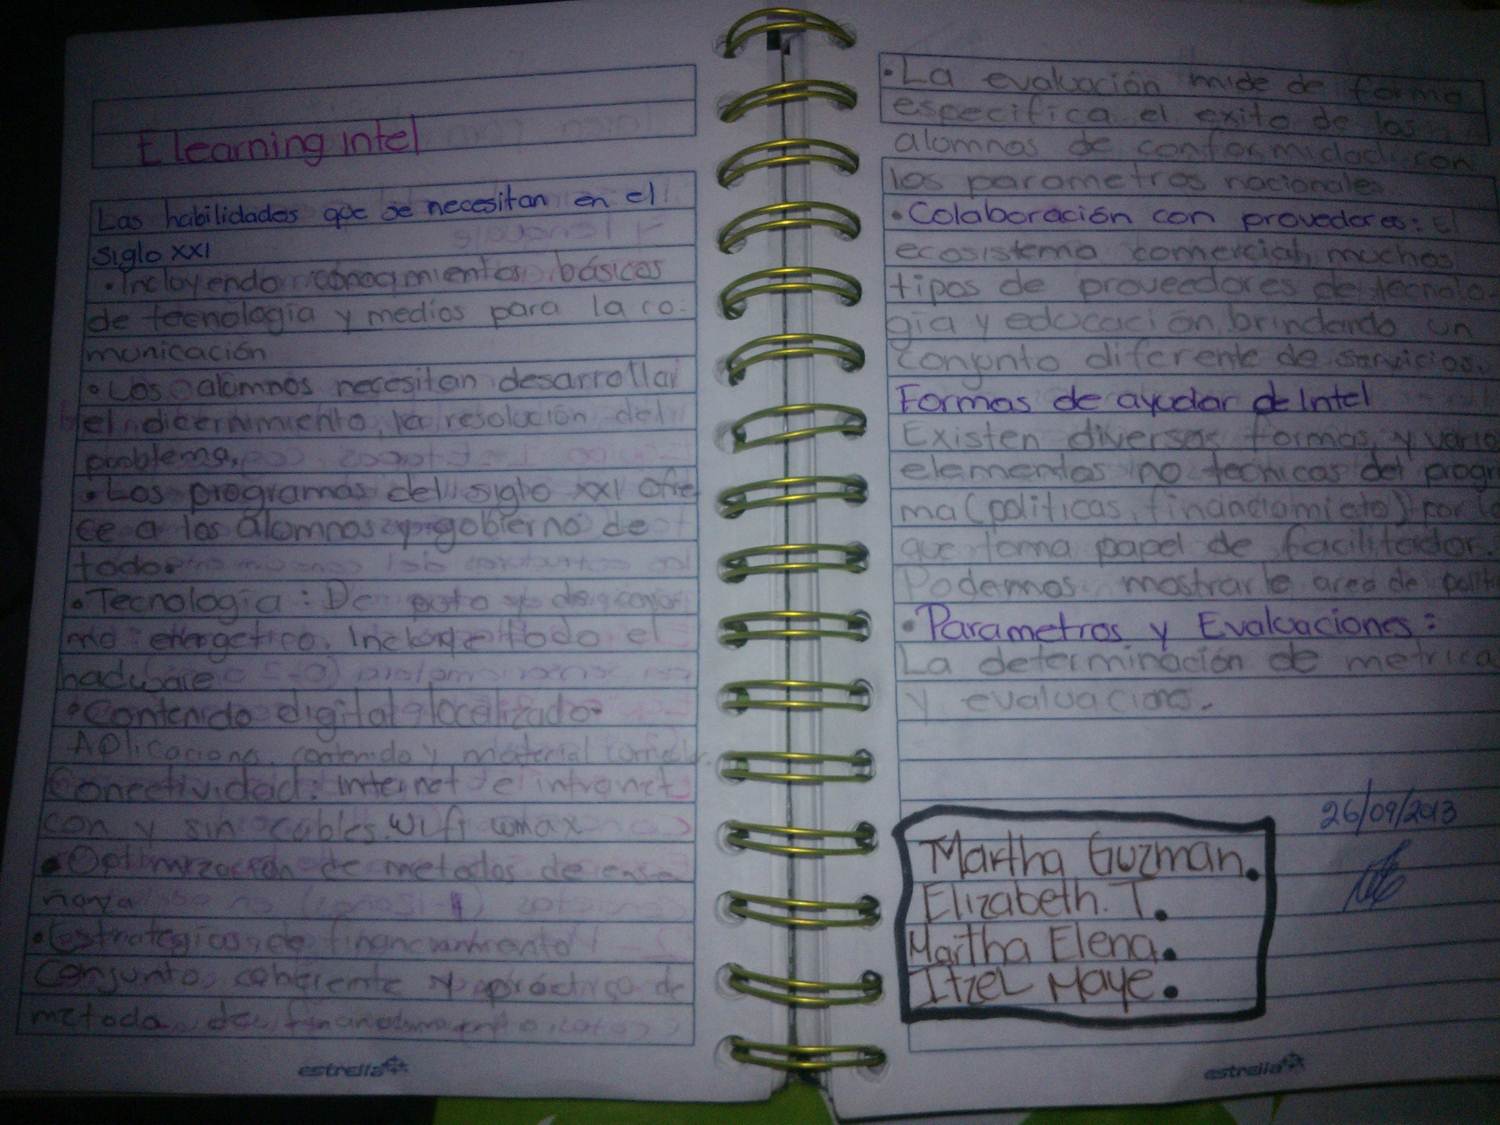 E learning intel
Las habilidades que se necesitan en el
siglo XXI
• Incluyendo conocimientos básicos
de tecnologia y medios para la co-
municación
• Los alumnos necesitan desarrollar
el dicernimiento, la resolución del
problema.
• Los programas del siglo XXI ofre
ce a los alumnos y gobierno de
todo.
• Tecnologia: De
mo energetico. Incluye todo el
hadware
• Contenido digital localizado.
Aplicacions, contenido y material
Conectividad: Internet e intranet
con y sin cables. Wifi wmax
• Optimización de metodos de ense
ñanza
• Estrategias de financiamiento
Conjunto coherente y práctico de
metodo de
• La evaluación mide de forma
especifica el exito de los
alomnos de conformidad con
los parametros nacionales
• Colaboración con provedores: El
ecosistema comercial, muchos
tipos de proveedores de tecnolo-
gia y educación, brindando un
conjunto diferente de servicios.
Formas de ayudar de Intel
Existen diversas formas y vario
elementos no tecnicos del progr
ma (politicas, financiamieto) por lo
que toma papel de facilitador.
Podemos mostrarle area de
• Parametros y Evaluaciones:
La determinación de metrica
y evaluacions.
26/09/2013
Martha Guzman.
Elizabeth. T.
Martha Elena.
Itzel Maye.
estrella
estrella